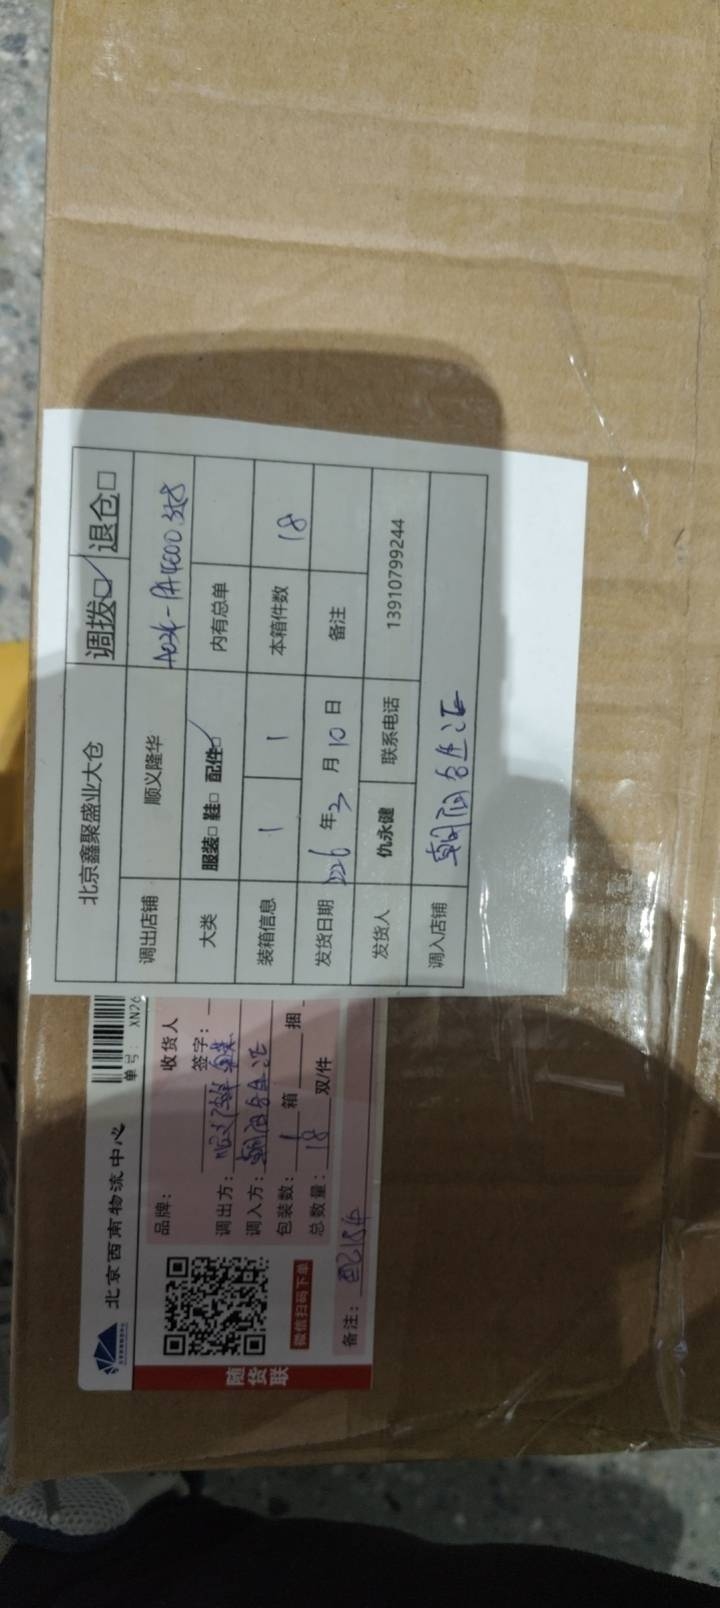 北京鑫聚盛业大仓 调拨□✓ 退仓□
调出店铺 顺义隆华
大类 服装□ 鞋□ 配件□✓ 内有总单
装箱信息 1 1 本箱件数 18
发货日期 2026年3月10日 备注
发货人 仇永健 联系电话 13910799244
调入店铺 朝阳合生汇
北京西南物流中心 单号: XN26
品牌: 收货人
签字:
调出方:
调入方: 朝阳合生汇
包装数: 1 箱 捆
总数量: 18 双/件
备注: 配18件
微信扫码下单
随货联